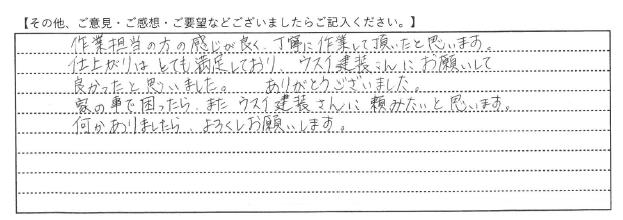 【その他、ご意見・ご感想・ご要望などございましたらご記入ください。】
作業担当の方の感じが良く、丁寧に作業して頂いたと思います。
仕上がりは とても満足しており、ウスイ建装さんにお願いして
良かったと思いました。 ありがとうございました。
家の事で困ったら、また ウスイ建装さんに 頼みたいと思います。
何かありましたら、よろしくお願いします。